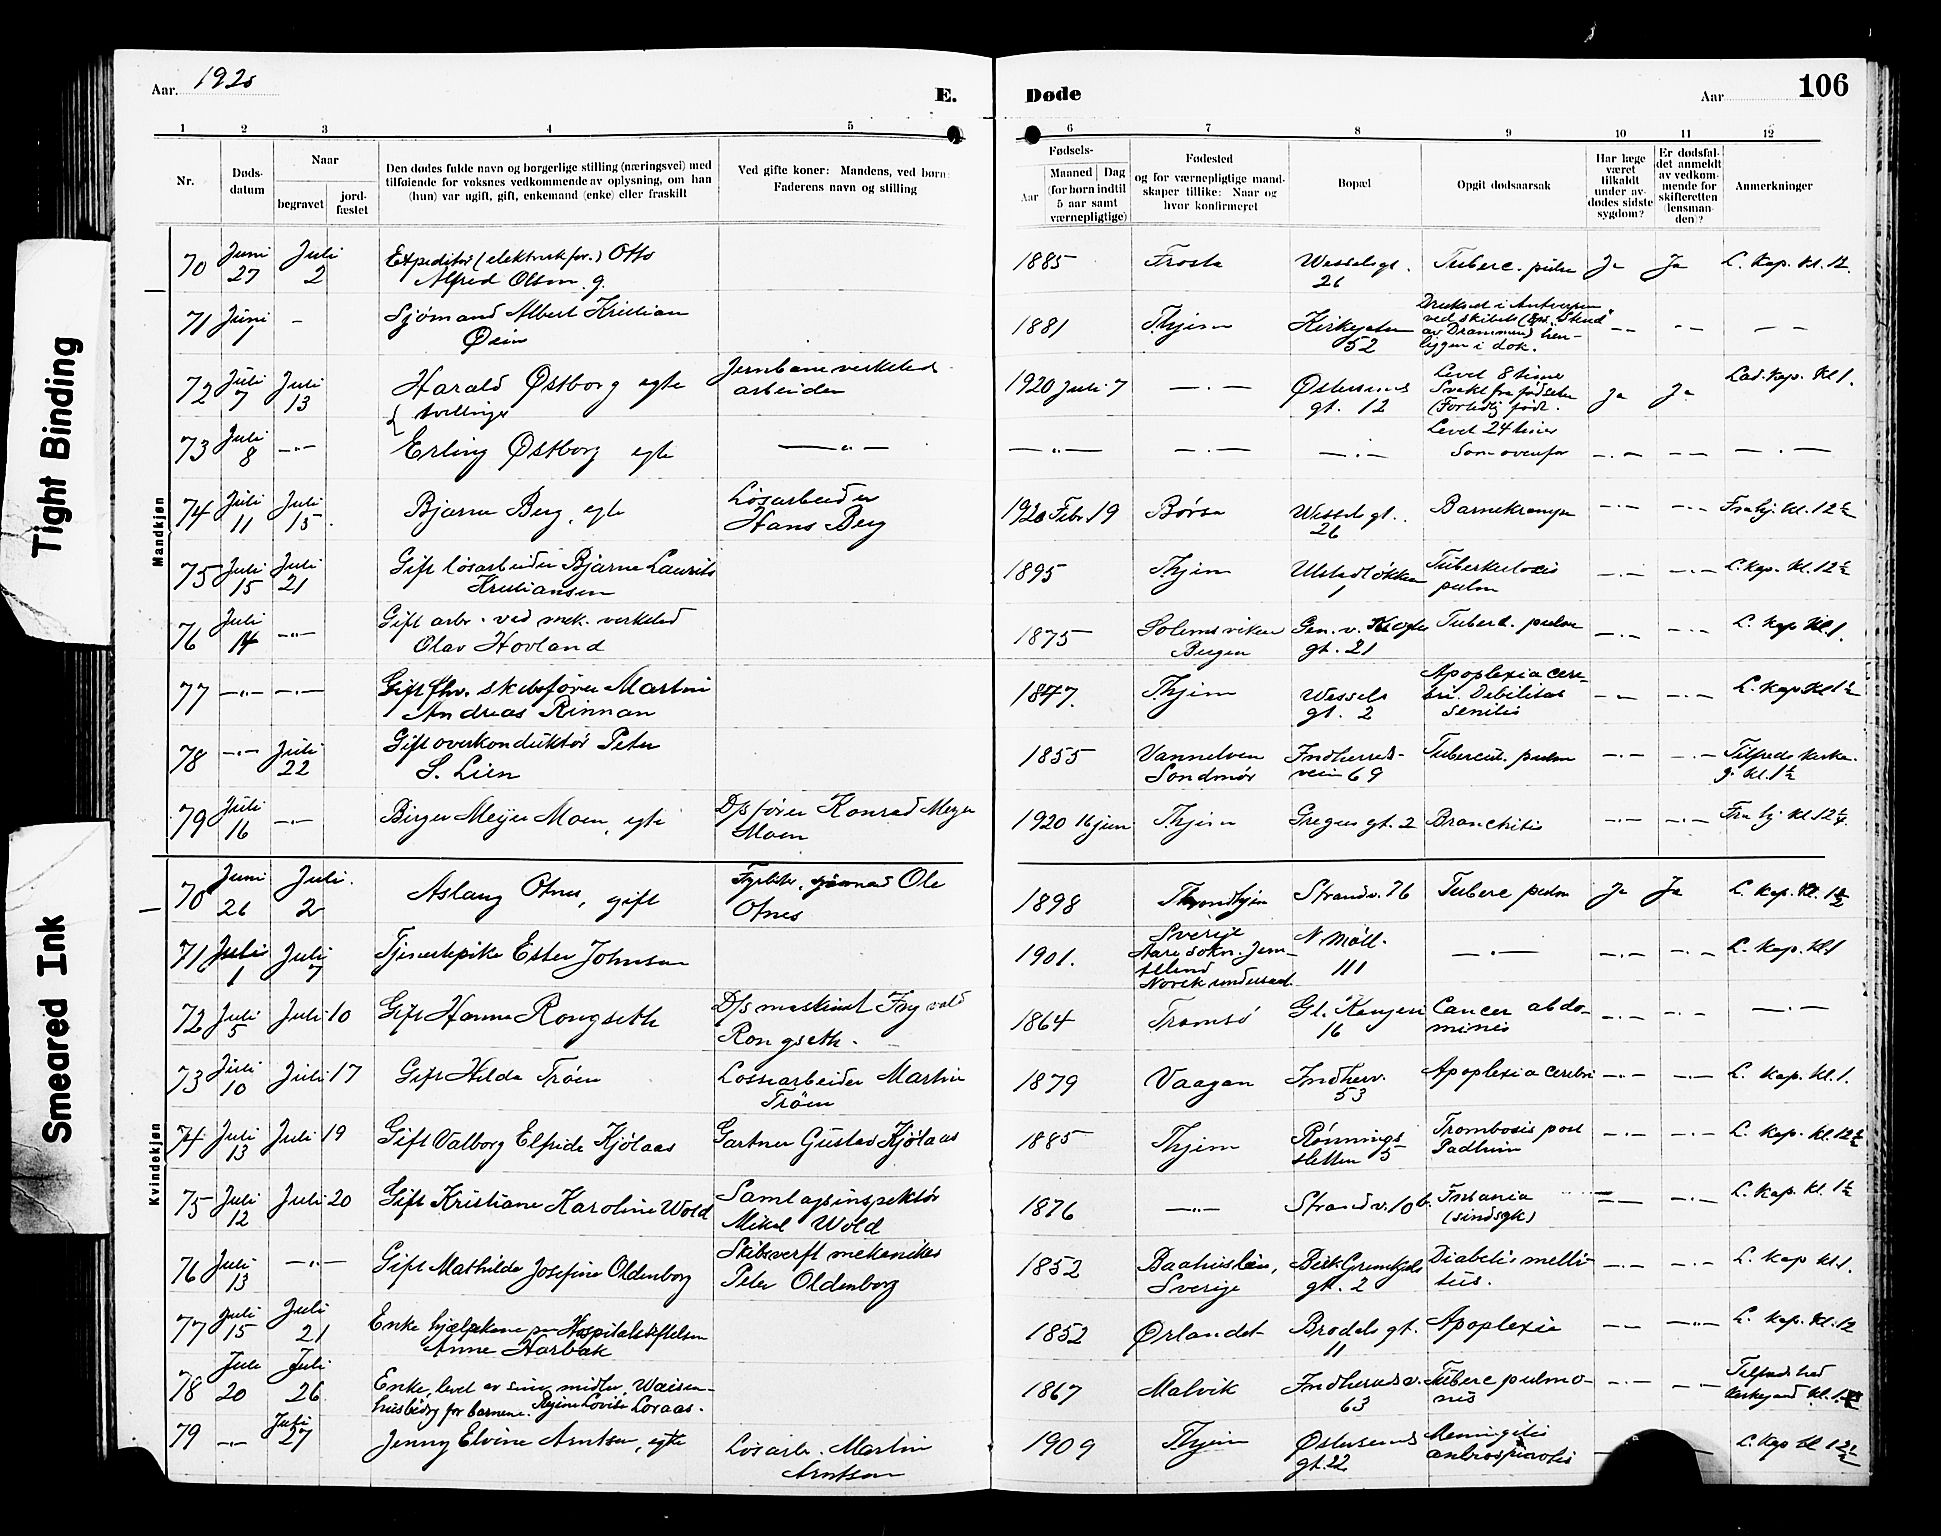 Aar. 1920
E. Døde
Aar 106
Tight Binding
Smeared Ink
1 2 3 4 5 6 7 8 9 10 11 12
Nr.
Døds-
datum
Naar
begravet
jord-
fæstet
Den dødes fulde navn og borgerlige stilling (næringsvei) med
tilføiende for voksnes vedkommende av oplysning, om han
(hun) var ugift, gift, enkemand (enke) eller fraskilt
Ved gifte koner: Mandens, ved børn:
Faderens navn og stilling
Fødsels-
Aar
Maaned Dag
(for børn indtil
5 aar samt
værnepligtige)
Fødested
og for værnepligtige mand-
skaper tillike: Naar og
hvor konfirmeret
Bopæl
Opgit dødsaarsak
Har læge
været
tilkaldt
under av-
dødes sidste
sygdom?
Er dødsfal-
det anmeldt
av vedkom-
mende for
skifteretten
(lensman-
den)?
Anmerkninger
Mandkjøn
70 Juni 27 Juli 2 Expeditør (elektrisk for.) Otto
Alfred Olsen. g. 1885 Frosta Wesselsgt. 26 Tuberc. pulm Ja Ja L. Kap. Kl. 12.
71 Juni - Sjømand Albert Kristian
Øien 1881 Thjem Kirkegaten 52 Druknet i Antwerpen
ved skibets ( "Stend"
av Drammen) hen-
liggen i dok. -- -- --
72 Juli 7 Juli 13 Harald Østborg egte Jernbaneverksteds
arbeider 1920 Juli 7 -.- Østersunds
gt. 12 Levet 8 timer
Svakt fra fødselen
(Fortidlig født. Ja Ja Lad. Kap. Kl 1.
{ tvillinger
73 Juli 8 -"- Erling Østborg egte -"- -"- -.- -.- Levet 24 timer
Som ovenfor -.- -- -.-
74 Juli 11 Juli 15 Bjarne Berg, egte Løsarbeider
Hans Berg 1920 Febr. 19 Børsa Wesselsgt.
26 Barnekrampe -.- -.- Fra hj. kl. 12 ½
75 Juli 15 Juli 21 Gift løsarbeider Bjarne Laurits
Kristiansen 1895 Thjem Ulstadløkken
1 Tuberkulosis
pulm -.- -.- L. Kap. Kl. 12 ½
76 Juli 14 -"- Gift arbr. ved mek. verksted
Olav Hovland 1875 Solemsviken
Bergen Gen. v. Kroghs
gt. 21 Tuberc. pulm -.- -.- L. Kap Kl 1.
77 -"- -.- Gift fhv. skibsfører Martin
Andreas Rinnan 1847. Thjem Wessels
gt. 2 Apoplexia cere-
bri. Debilitas
senilis -.- -.- L. Kap Kl 1 ½
78 -.- Juli 22 Gift overkonduktør Peter
S. Lien 1855 Vannelven
Søndmør Indherreds-
veien 69 Tubercul. pulm -.- -.- Tilfreds kirke-
g. kl. 1 ½
79 Juli 16 -.- Birger Meyer Moen, egte D/s fører Konrad Meyer
Moen 1920 16 juni Thjem Gregus gt. 2 Bronchitis -.- -.- Fra hj. Kl. 12 ¼.
Kvindekjøn
70 Juni 26 Juli. 2 Aslaug Otnes, gift Fyrbøter, sjømand Ole
Otnes 1898 Throndhjem Strandv. 76 Tuberc pulm Ja Ja L. Kap. Kl. 1 ½
71 Juli 1 Juli 7 Tjenestepike Ester Johnsen 1901. Sverige
Aare sokn. Jem-
tland
Norsk undersaat. N Møll.
111 -.- -.- -.- L. Kap. Kl. 1
72 Juli 5 Juli 10 Gift Hanna Rongseth D/s maskinist Ingvald
Rongseth. 1864 Tromsø Gl. Kongevei
16 Cancer abdo-
minis -.- -.- -.-
73 Juli 10 Juli 17 Gift Hilda Trøen Lossearbeider Martin
Trøen 1879 Vaagan Indherv.
53 Apoplexia cerebri -.- -.- L. Kap. Kl. 1.
74 Juli 13 Juli 19 Gift Valborg Elfrida Kjølaas Gartner Gustav Kjølaas 1885 Thjem Rønnings
sletten 5 Trombosis post
-.- -.- L. Kap. Kl. 12 ½
75 Juli 12 Juli 20 Gift Kristiane Karoline Wold Samlagsinspektør
Mikal Wold 1876 -"- Strandv. 10 b. Insania
(sindsyk) -.- -.- L. Kap. Kl. 1 ½
76 Juli 13 -"- Gift Mathilde Josefine Oldenborg Skibsverft mekaniker
Peter Oldenborg 1852 Baahuslän,
Sverige Birk Grimkjels
gt. 2 Diabetis melli-
tus. -.- -.- L. Kap Kl. 1.
77 Juli 15 Juli 21 Enke hjælpekone paa Hospitalstiftelsen
Anne Harbak 1852 Ørlandet Brodels gt.
11 Apoplexia -- -"- L. Kap. Kl. 12
78 Juli 20 Juli 26 Enke, levet av sine midler, Waisen-
husbidrg for barnene. Regine Lovise Loraas. 1867 Malvik Indherredsv.
63 Tuberc pulmo-
nis -.- -.- Tilfredshed
kirkegaard kl. 1 ½
79 -"- Juli 27 Jenny Elvine Arntsen, egte Løsarb. Martin
Arntsen 1909 Thjem Østersunds
gt. 22 Meningitis
cerebrospinalis L. Kap kl 12 ½